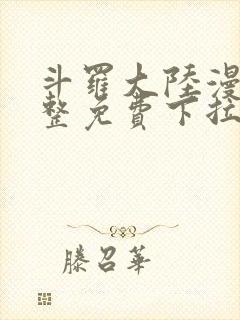 斗羅大陸漫
整免費下拉
滕召華